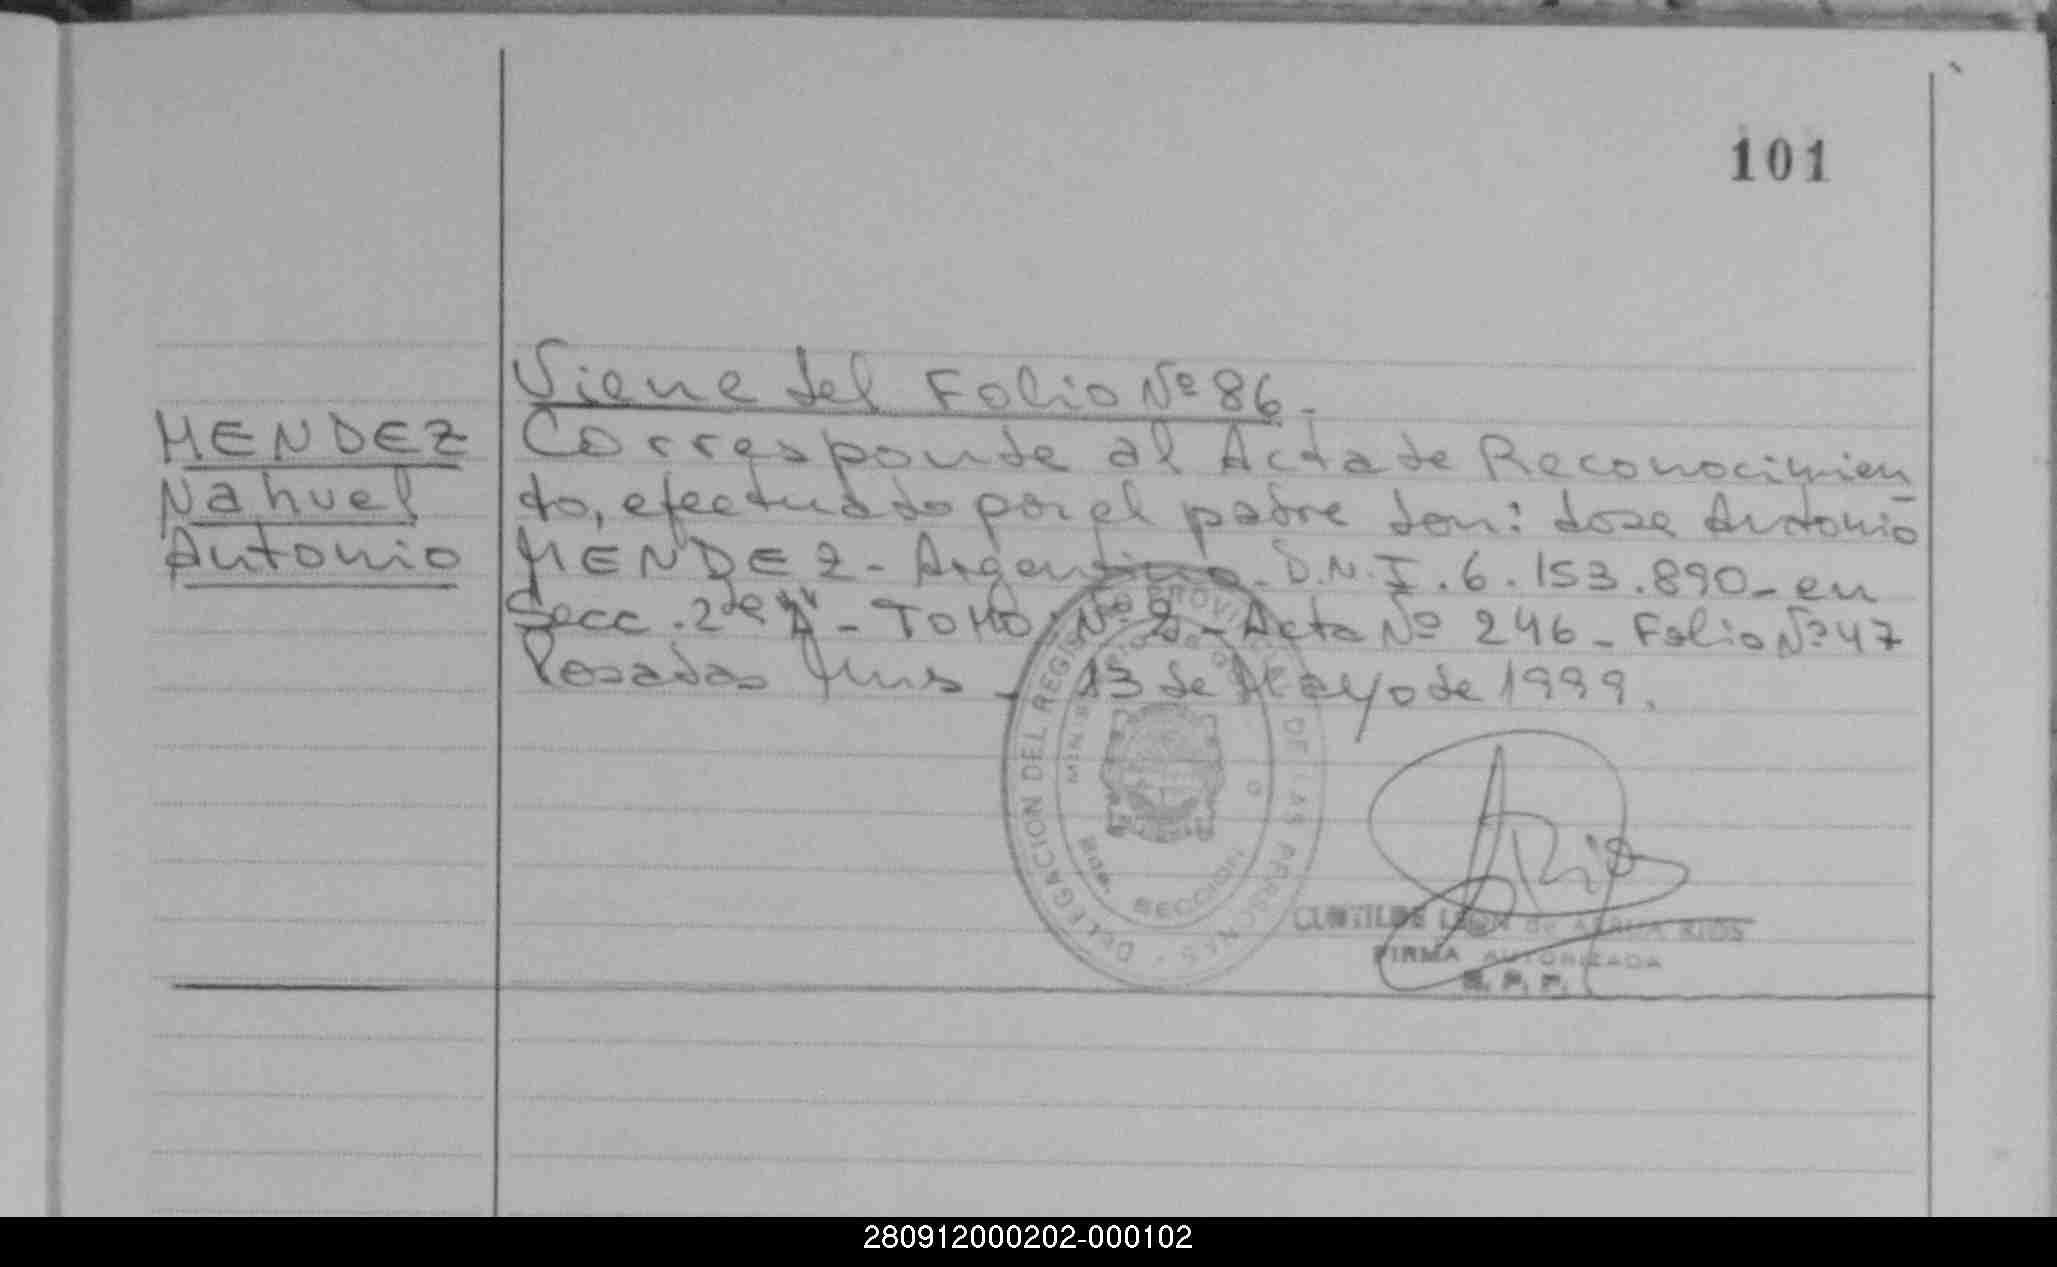 101
Viene del Folio Nº 86.
MENDEZ
Nahuel
Antonio
Corresponde al Acta de Reconocimien
to, efectuado por el padre don: Jose Antonio
MENDEZ - Argentino - D.N.I. 6.153.890 - en
Secc. 2da "A" - TOMO Nº 2 - Acta Nº 246 - Folio Nº 47
Posadas Mns - 13 de Mayo de 1999.
DELEGACION DEL REGISTRO PROVINCIAL DE LAS PERSONAS
2da. SECCION
ARios
CLOTILDE LEON de RIOS
FIRMA AUTORIZADA
R. P. P.
280912000202-000102